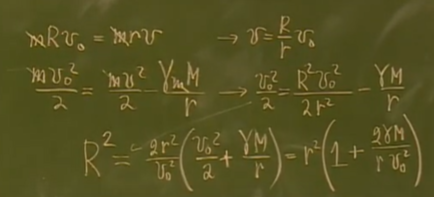 mRv₀ = mrv → v = R/r v₀
mv₀²/2 = mv²/2 - γmM/r → v₀²/2 = R²v₀²/2r² - γM/r
R² = 2r²/v₀² (v₀²/2 + γM/r) = r² (1 + 2γM/rv₀²)